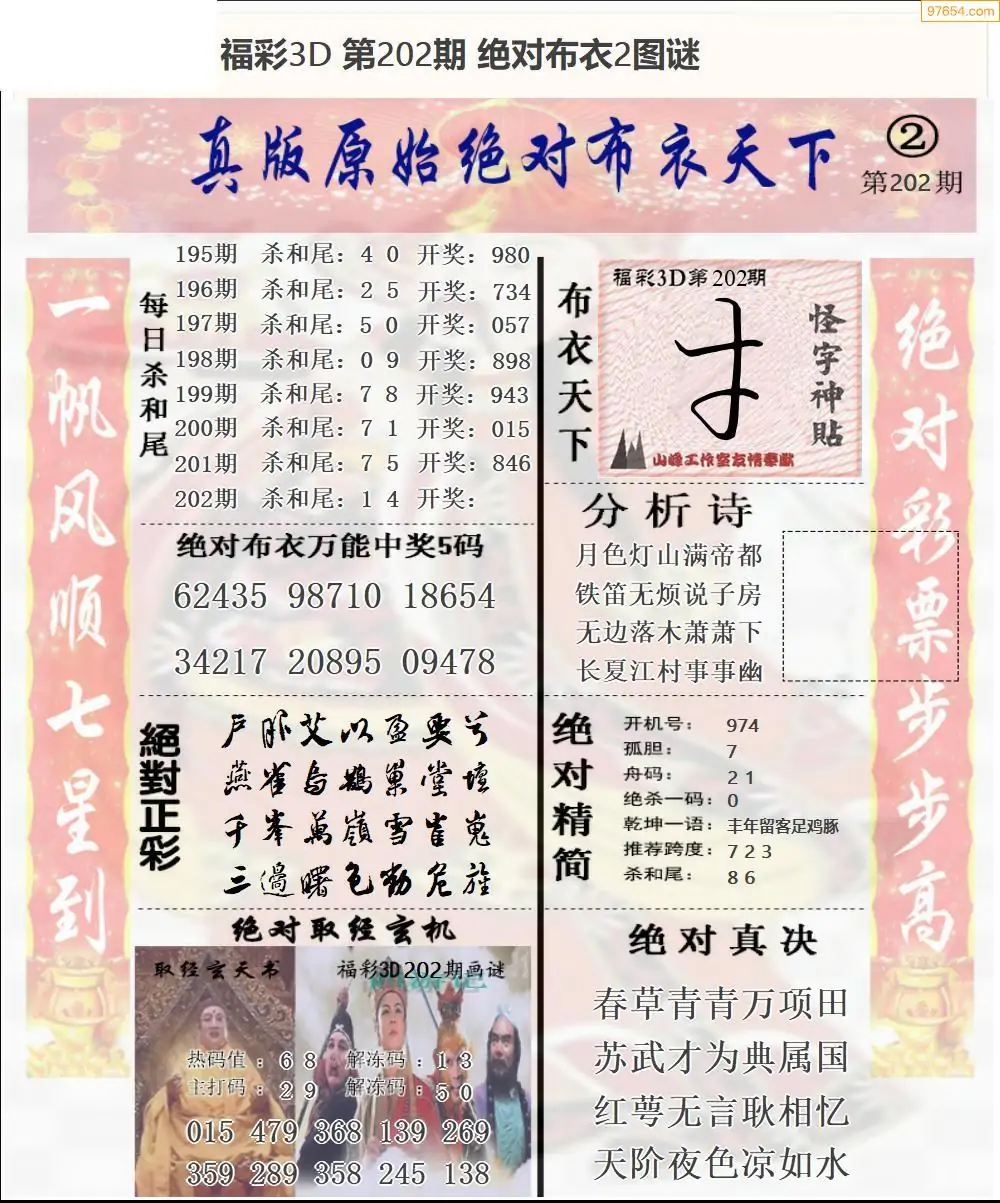 97654.com
福彩3D 第202期 绝对布衣2图谜
真版原始绝对布衣天下
②
第202期
一帆风顺七星到
每日杀和尾
195期 杀和尾：4 0 开奖：980
196期 杀和尾：2 5 开奖：734
197期 杀和尾：5 0 开奖：057
198期 杀和尾：0 9 开奖：898
199期 杀和尾：7 8 开奖：943
200期 杀和尾：7 1 开奖：015
201期 杀和尾：7 5 开奖：846
202期 杀和尾：1 4 开奖：
绝对布衣万能中奖5码
62435 98710 18654
34217 20895 09478
絕對正彩
燕雀烏鵲巢堂壇
千峯萬嶺雪崔嵬
三邊曙色動危旌
绝对取经玄机
取经玄天书
福彩3D202期画谜
热码值：6 8 解冻码：1 3
主打码：2 9 解冻码：5 0
015 479 368 139 269
359 289 358 245 138
布衣天下
福彩3D第202期
怪字神貼
山峰工作室友情奉献
分析诗
月色灯山满帝都
铁笛无烦说子房
无边落木萧萧下
长夏江村事事幽
绝对精简
开机号： 974
孤胆： 7
舟码： 2 1
绝杀一码：0
乾坤一语：丰年留客足鸡豚
推荐跨度：7 2 3
杀和尾： 8 6
绝对真决
春草青青万项田
苏武才为典属国
红萼无言耿相忆
天阶夜色凉如水
绝对彩票步步高